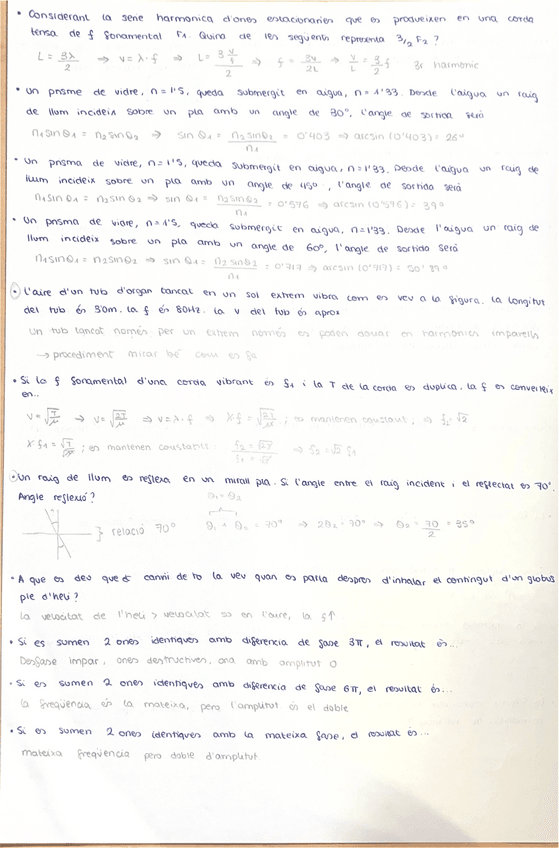 • Considerant la serie harmonica d'ones estacionaries que es produeixen en una corda
tensa de f fonamental F1. Quina de les seguents representa 3/2 F2?
L = 3λ/2 ⇒ v = λ·f ⇒ L = 3 v/f / 2 ⇒ f = 3v/2L ⇒ v/L = 3/2 f 3r harmonic
• Un prisme de vidre, n=1'5, queda submergit en aigua, n=1'33. Desde l'aigua un raig
de llum incideix sobre un pla amb un angle de 30º, l'angle de sortida serà
n1 sinθ1 = n2 sinθ2 ⇒ sin θ1 = n2 sinθ2 / n1 = 0'403 ⇒ arcsin (0'403) = 26º
• Un prisma de vidre, n=1'5, queda submergit en aigua, n=1'33. Desde l'aigua un raig de
llum incideix sobre un pla amb un angle de 45º, l'angle de sortida serà
n1 sin θ1 = n2 sin θ2 ⇒ sin θ1 = n2 sinθ2 / n1 = 0'576 ⇒ arcsin (0'576) = 39º
• Un prisma de vidre, n=1'5, queda submergit en aigua, n=1'33. Desde l'aigua un raig de
llum incideix sobre un pla amb un angle de 60º, l'angle de sortida serà
n1 sinθ1 = n2 sinθ2 ⇒ sin θ1 = n2 sinθ2 / n1 = 0'717 ⇒ arcsin (0'717) = 50'
• L'aire d'un tub d'organ tancat en un sol extrem vibra com es veu a la figura. La longitut
del tub és 30m. la f és 80Hz. la v del tub és aprox
Un tub tancat només per un extrem només es poden donar en harmonics imparells
→ procediment mirar bé com es fa
• Si la f fonamental d'una corda vibrant és f1 i la T de la corda es duplica, la f es converteix
en..
v = √T/μ → v = √2T/μ ⇒ v = λ·f ⇒ λ·f = √2T/μ ; es mantenen constant ; ⇒ f2 √2
λ f1 = √T/μ ; es mantenen constants: f2 = √2T / f1 = √T ⇒ f2 = √2 f1
• Un raig de llum es reflexa en un mirall pla. Si l'angle entre el raig incident i el reflectat es 70º.
Angle reflexió? θ1 = θ2
} relació 70º θ1 + θ2 = 70º ⇒ 2θ2 = 70º ⇒ θ2 = 70/2 = 35º
• A que es deu que es canvii de to la veu quan es parla despres d'inhalar el contingut d'un globus
ple d'heli?
la velocitat de l'heli > velocitat so en l'aire, la f↑
• Si es sumen 2 ones identiques amb diferencia de fase 3π, el resultat és...
Desfase impar, ones destructives, ona amb amplitut 0
• Si es sumen 2 ones identiques amb diferencia de fase 6π, el resultat és...
la freqüencia és la mateixa, pero l'amplitut és el doble
• Si es sumen 2 ones identiques amb la mateixa fase, el resultat és...
mateixa freqüencia pero doble d'amplitut